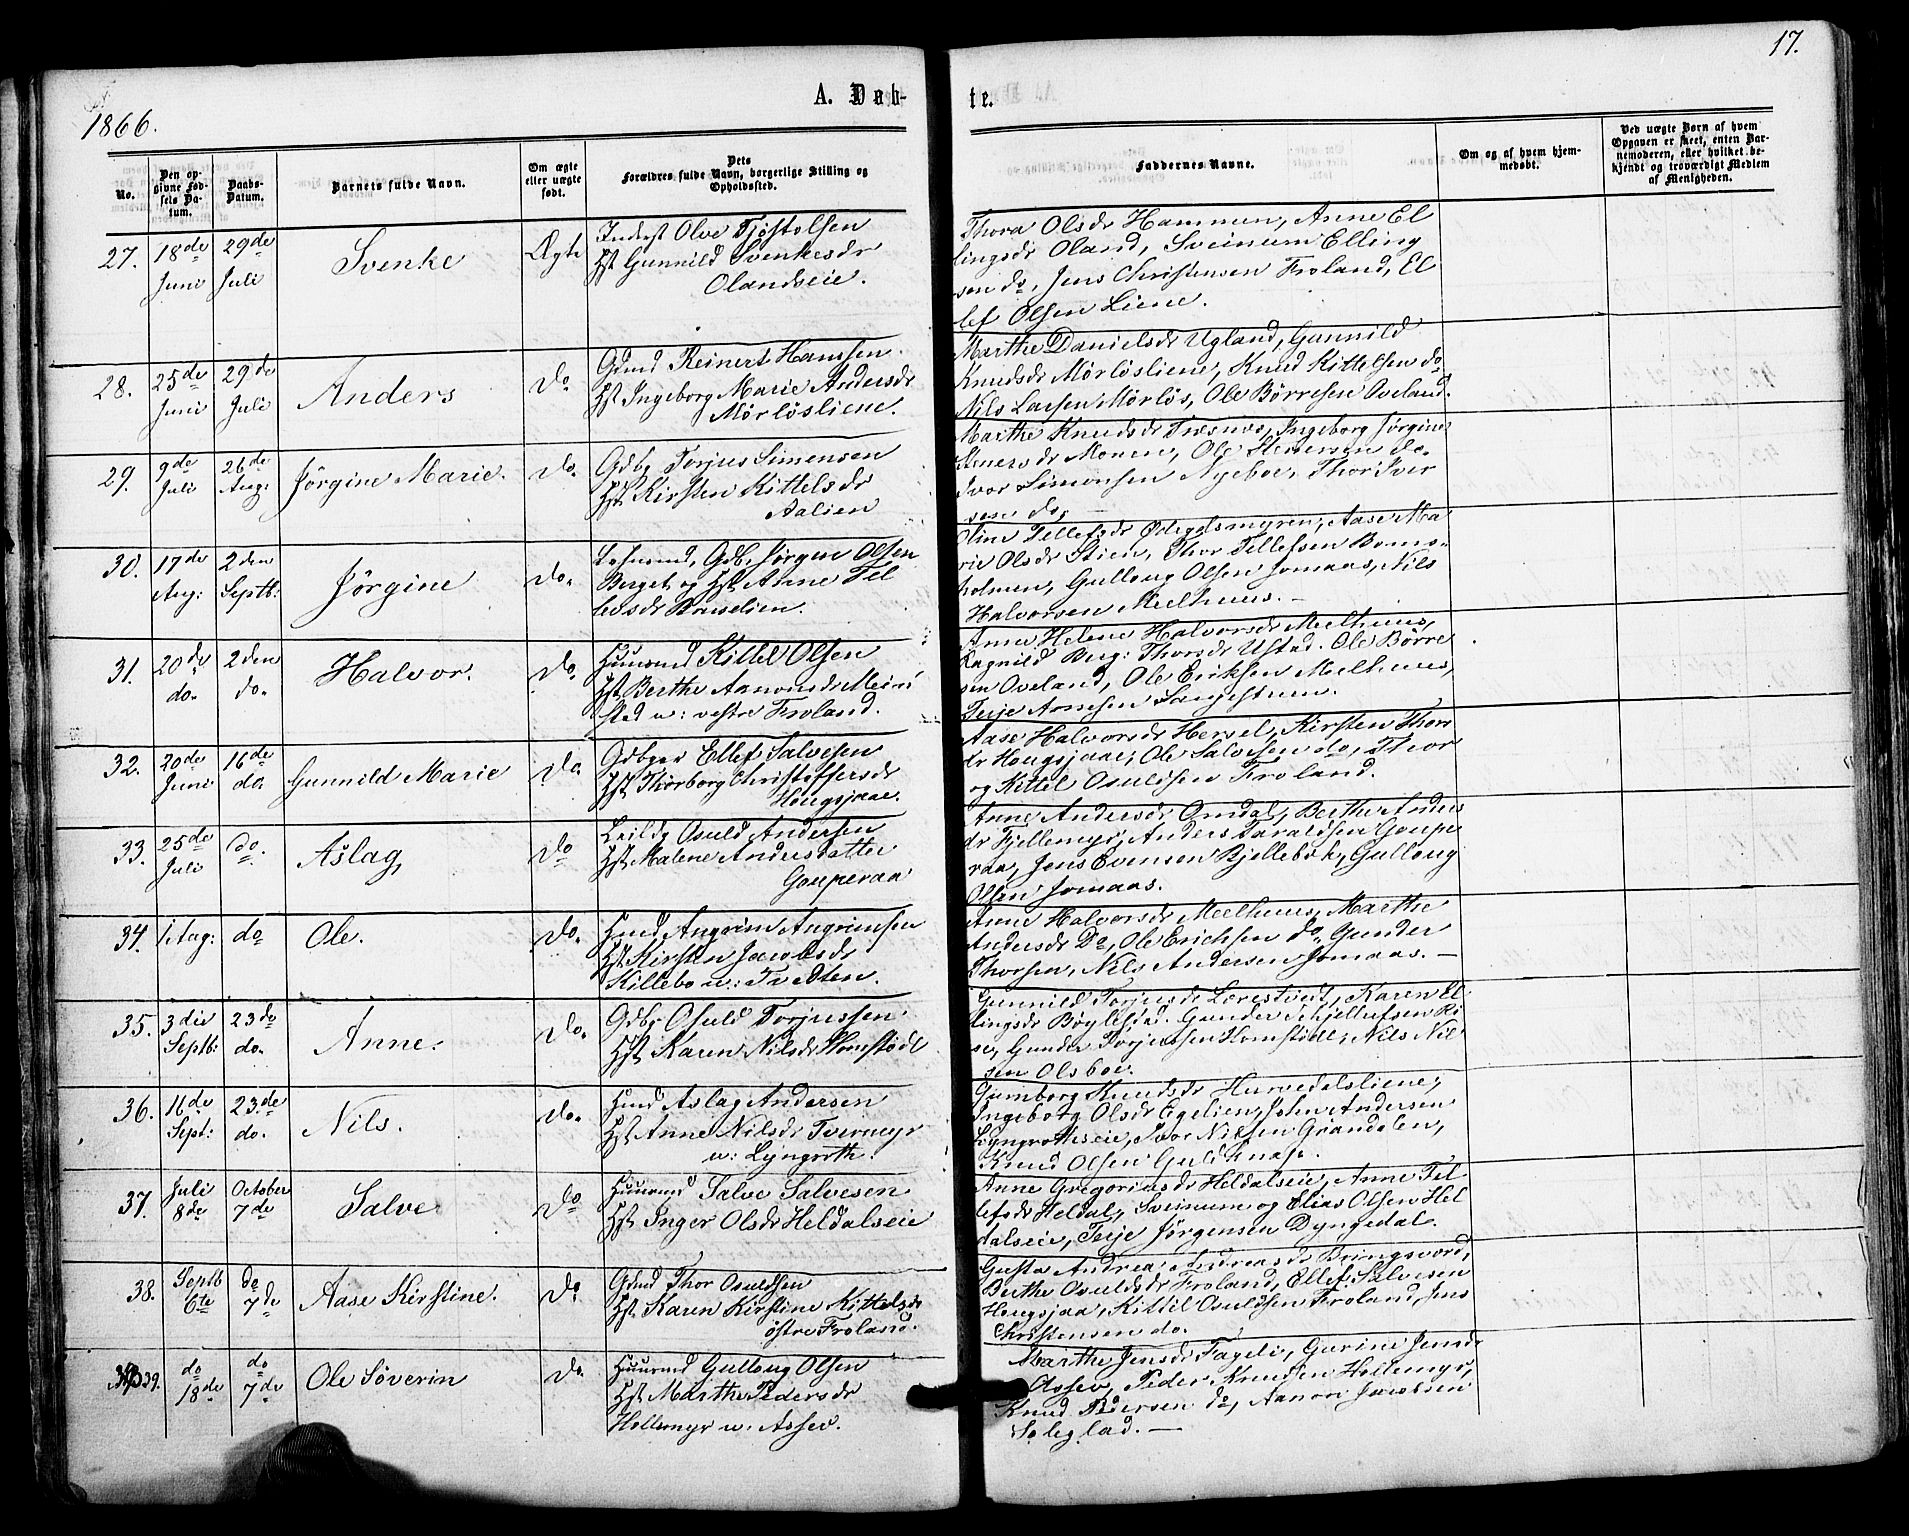 17.
A. Døb-
te.
1866.
No.
Den op-
givne Fød-
sels Da-
tum.
Daabs-
Datum.
Barnets fulde Navn.
Om ægte
eller uægte
født.
Dets
Forældres fulde Navn, borgerlige Stilling og
Opholdssted.
Faddernes Navne.
Om og af hvem hjem-
medøbt.
Ved uægte Børn af hvem
Opgaven er skeet, enten Bar-
nemoderen, eller hvilket be-
kjendt og troværdigt Medlem
af Menigheden.
27. 18de Juni
29de Juli
Svenke
Ægte
Inderst Olve Tjøstolsen
Hst Gunnild Svenkesdr
Olandseie.
Thora Olsdr Hammen, Anne El
lingsdr Oland, Sveinum Elling
sen do, Jens Christensen Froland, El
lef Olsen Liene.
28. 25de Juni
29de Juli
Anders
do
Gmd Reinert Hanssen
Hst Ingeborg Marie Andersdr
Mørløsliene.
Marthe Danielsdr Ugland, Gunnild
Knudsdr Mørløsliene, Knud Kittelsen do
Nils Larsen Mørløs, Ole Børresen Oveland.
29. 9de Juli
26de Aug:
Jørgine Marie.
do.
Gdbr Torjus Simensen
Hst. Kirsten Kittelsdr
Aalien
Marthe Knudsdr Trænes, Ingeborg Jørgine
Stenersdr Monen, Ole Stenersen do.
Ivor Simonsen Nyeboe, Thor Iver
sen do.
30. 17de Aug:
2den Septb:
Jørgine
do.
Gdb. Jørgen Olsen
Berget og Hst. Anne Tel
lefsdr
Olsdr Stien, Thor Tellefsen Boms-
holmen, Gulloug Olsen Jomaas, Nils
Halvorsen Meelhuus.
31. 20de do.
2den do.
Halvor.
do.
Huusmd Kittel Olsen
Hst Berthe Aanonsdr
sted u: vestre Froland.
Anne Helene Halvorsdr Meelhuus,
Ragnild Berg: Thorsdr Ustad. Ole Børre
sen Oveland, Ole Eriksen Meelhuus,
Terje Arnesen
32. 20de Juni
16de do.
Gunnild Marie
do.
Ellef Salvesen
Hst Thorborg Christoffersdr
Hougsjaae.
Aase Halvorsdr Hervel, Kirsten Thors
dr Hougsjaae, Ole Salvesen do, Thor
og Kittel Osuldsen Froland.
33. 25de Juli
do.
Aslag,
do
Leildg Osuld Andersen
Hst Malene Andersdatter
Gouperaa
Anne Andersdr Omdal, Berthe Anders
dr Fjellemyr, Anders Taraldsen Goupe
raa, Jens Evensen Bjellebek, Gulloug
Olsen Jomaas.
34. 1 Aug:
do
Ole.
do.
Hmd Angrim Angrimsen
Hst Kirsten Jacobsdr
Killebo u: Tvedten.
Anne Halvorsdr Meelhuus, Marthe
Andersdr Do, Ole Erichsen do, Gunder
Thorsen, Nils Andersen Jomaas.
35. 3die Septb:
23de do.
Anne.
do.
Gdbr Osuld Torjussen
Hst Karen Nilsdr Homstødt
Gunnild Torjusdr Lorestvedt, Karen El
lingsdr Bøylestad. Gunder Schjellufsen Ri
se, Gunder Torjussen Homstødt, Nils Nil
sen Olsboe.
36. 16de Sept:
23.de do.
Nils.
do.
Hmd Aslag Andersen
Hst Anne Nilsdr Tvermyr
u: Lyngroth.
Gumborg Knudsdr Hurvedalsliene,
Ingeborg Olsdr Egelien, John Andersen
Lyngrothseie, Nilsen Grændalen,
Knud Olsen Guldknap.
37. Juli 8de
October 7de
Salve
do
Huusmd Salve Salvesen
Hst Inger Olsdr Heldalseie
Anne Gregoriusdr Heldalseie, Anne Tel
lefsdr Heldal, Sveinum og Elias Olsen Hel
dalseie, Terje Jørgensen Dyngedal.
38. Septb 6te
do 7de
Aase Kirstine.
do.
Gmd Thor Osuldsen
Hst. Karen Kirstine Kittelsdr
østre Froland.
Gusta Andrea Andreasdr Bringsvord,
Berthe Osuldsdr Froland, Ellef Salvesen
Hougsjaa, Kittil Osuldsen Froland, Jens
Christensen do.
39. do 18de
do 7de
Ole Søverin
do.
Huusmd Gulloug Olsen
Hst Marthe Pedersdr
Hollemyr u: Assev.
Marthe Jensdr Fageli, Gurine Jensdr
Assev, Peder Knudsen Hollemyr,
Knud Pedersen do, Aanon Jacobsen
Soleglad.